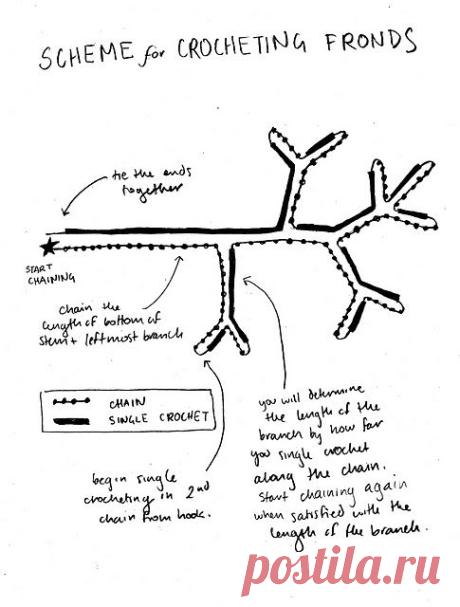 SCHEME for CROCHETING FRONDS
tie the ends
together
START
CHAINING
chain the
length of bottom of
stem + leftmost branch
CHAIN
SINGLE CROCHET
begin single
crocheting in 2nd
chain from hook.
you will determine
the length of the
branch by how far
you single crochet
along the chain.
Start chaining again
when satisfied with the
length of the branch.
postila.ru